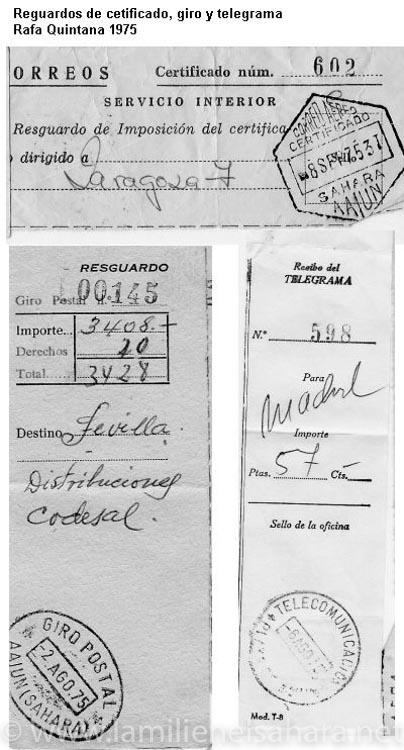 Reguardos de cetificado, giro y telegrama
Rafa Quintana 1975
ORREOS Certificado núm. 602
SERVICIO INTERIOR
Resguardo de Imposición del certifica
dirigido a
Zaragoza-7
CORREO AEREO
CERTIFICADO
SAHARA
AAIUN
RESGUARDO
Giro Postal n. 00145
Importe... 3408.-
Derechos 20
Total... 3428
Destino Sevilla.
Distribuciones
Codesal.
GIRO POSTAL
-2.AGO.75
AAIUN (SAHARA)
Recibo del
TELEGRAMA
N.° 598
Para
Madrid
Importe
Ptas. 57 Cts. -
Sello de la oficina
TELECOMUNICACION
Mod. T-8
© www.lamilienelsahara.net